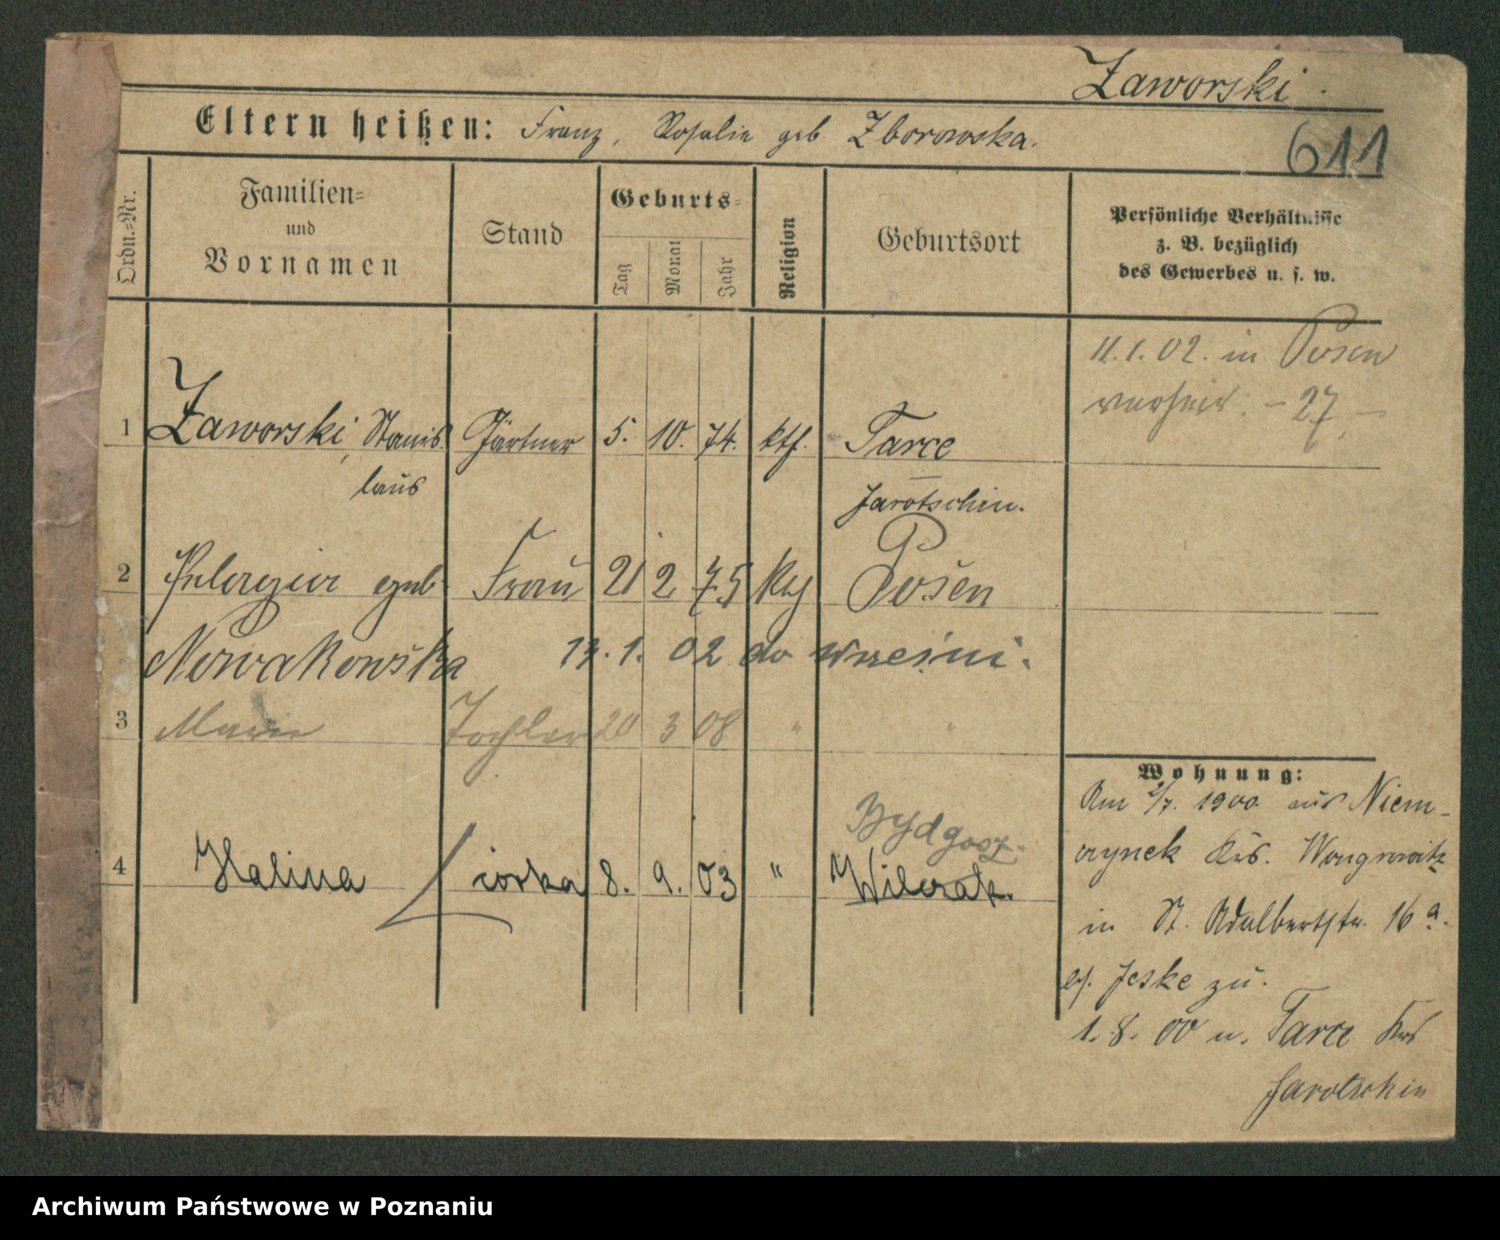 Zaworski.
Eltern heißen: Franz, Rosalie geb Zborowska.
611
Ordn.-Nr.
Familien-
und
Vornamen
Stand
Geburts-
Tag
Monat
Jahr
Religion
Geburtsort
Persönliche Verhältnisse
z. B. bezüglich
des Gewerbes u. s. w.
11.1.02. in Posen
verheir. - 27. -
1 Zaworski, Stanis Gärtner 5. 10. 74. kth. Tarce
laus Jarotschin.
2 Pelagia geb Frau 21 2 75 kth Posen
Nowakowska 13.1.02 do Wrześni.
3 Marie Tochter 20 3 08 " "
Bydgosz.
4 Halina córka 8. 9. 03 " Wilczak.
Wohnung:
Am 2/7. 1900 aus Niem-
czynek Krs. Wongrowitz
in St. Adalbertstr. 16 a.
bei Jeske zu.
1. 8. 00 n. Tarce Krs
Jarotschin
Archiwum Państwowe w Poznaniu